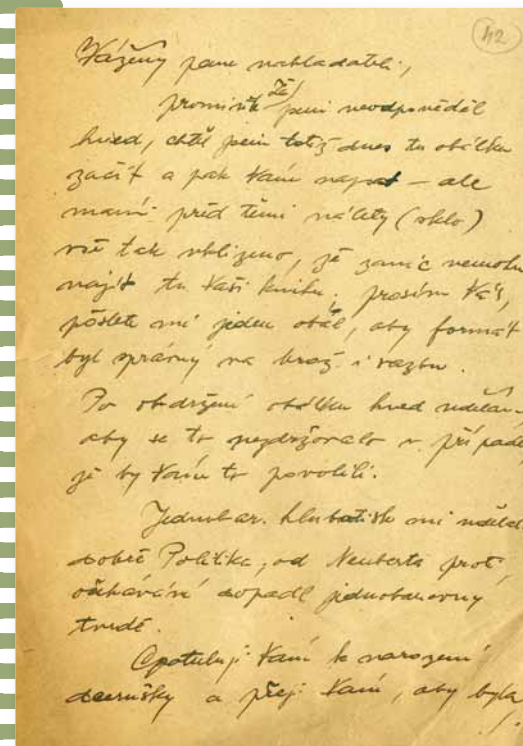 42
Vážený pane nakladateli,
promiňte že jsem neodpověděl
hned, chtěl jsem totiž dnes tu obálku
začít a pak Vám napsat — ale
mám před těmi nálety (sklo)
vše tak uklizeno, že zanic nemohu
najít tu Vaši knihu; prosím Vás,
pošlete mi jeden obál, aby formát
byl správný na brož i vazbu.
Po obdržení obálku hned udělám,
aby se to nezdržovalo v případě,
že by Vám to povolili.
Jednobar. hlubotisk mi udělala
dobře Politika, od Neuberta proti
očekávání dopadl jednobarevný
tvrdě.
Gratuluji Vám k narození
dcerušky a přeji Vám, aby byla